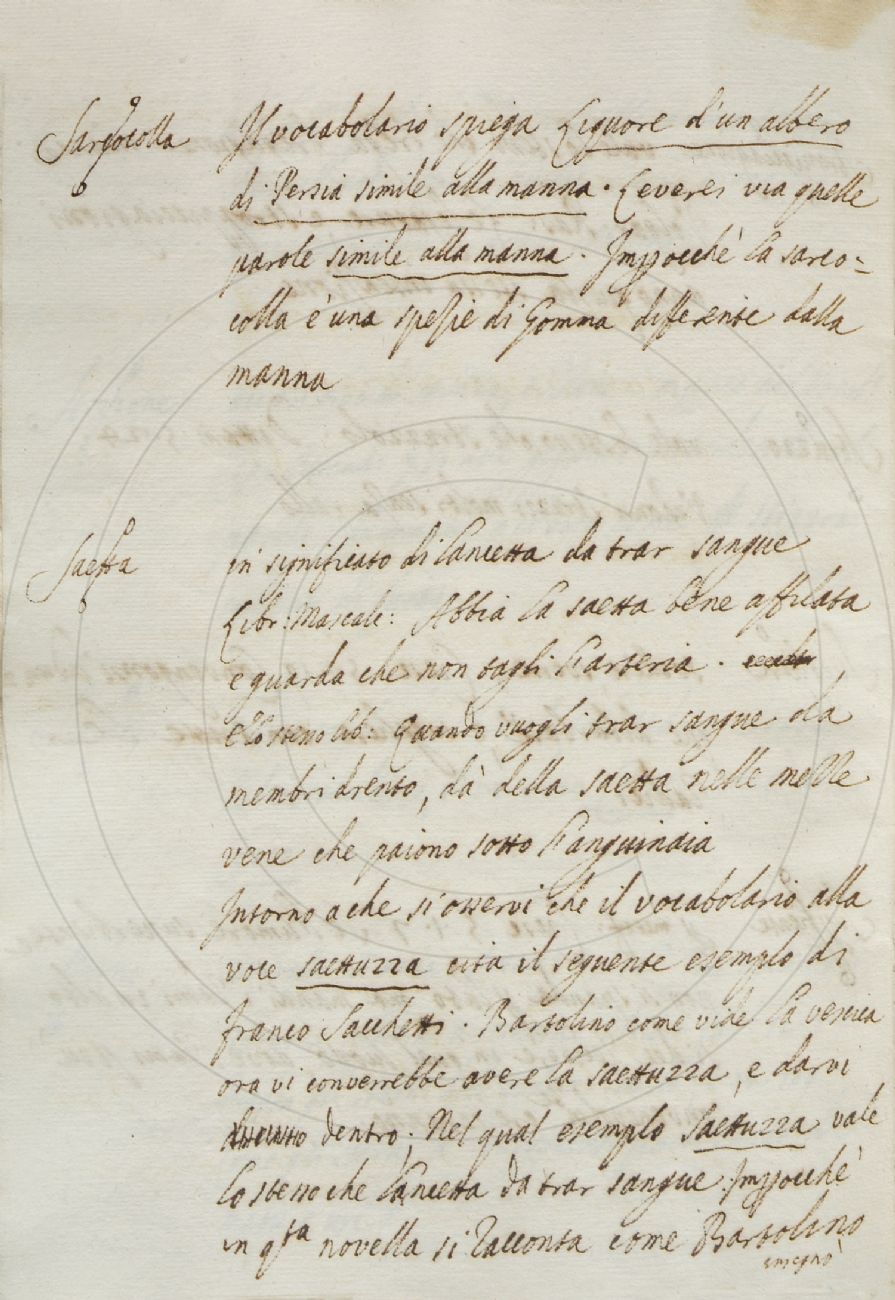 Sarcocolla
Il vocabolario spiega Liquore d'un albero
di Persia simile alla manna. Leverei via quelle
parole simile alla manna. Imp̱occhè la sarco=
colla è una spezie di Gomma differente dalla
manna
Saetta
in significato di Lancetta da trar sangue
Libr: Mascalc: Abbia la saetta bene affilata
e guarda che non tagli l'arteria.
E lo stesso lib: Quando vuogli trar sangue da
membri drento, dà della saetta nelle molle
vene che paiono sotto l'anguinaia
Intorno a che si osservi che il vocabolario alla
voce saettuzza cita il seguente esempio di
Franco Sacchetti. Bartolino come vide la vescica
ora vi converrebbe avere la saettuzza, e darvi
dentro; Nel qual esemplo saettuzza vale
lo stesso che lancetta da trar sangue. Imp̱occhè
in q.sta novella si racconta come Bartolino
insegnò